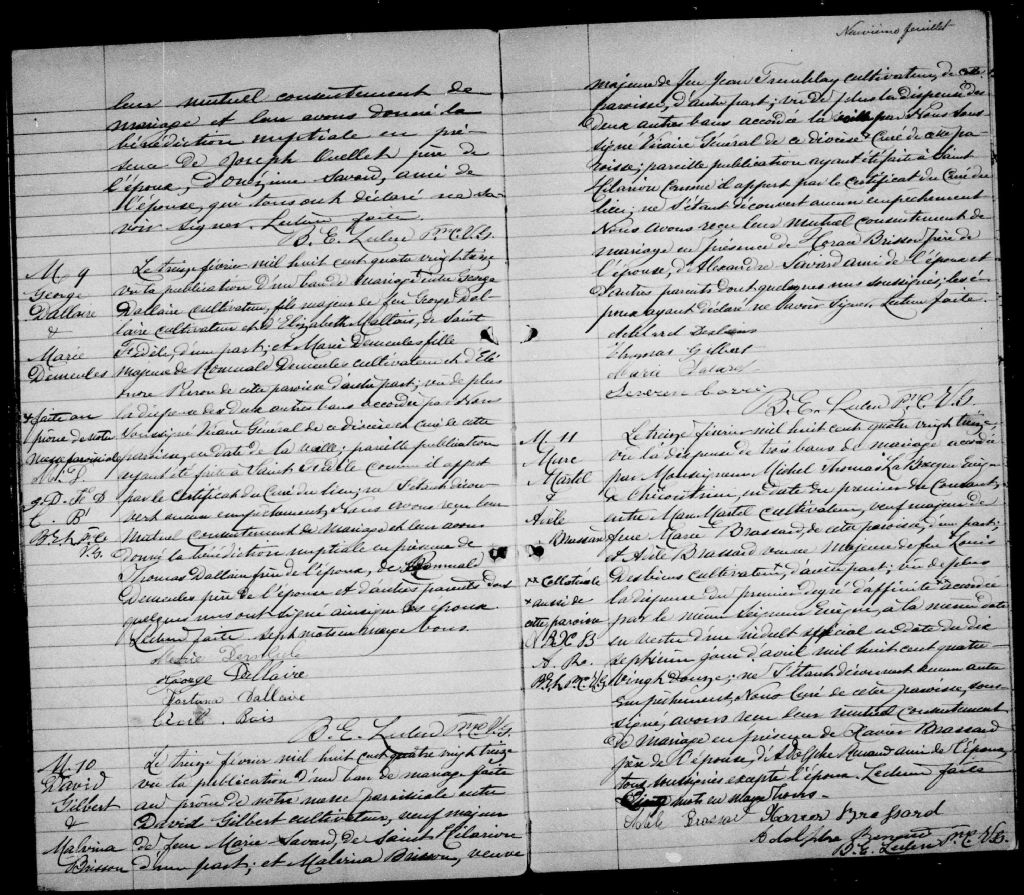 leur mutuel consentement de
mariage et leur avons donné la
bénédiction nuptiale en pré-
sence de Joseph Ouellet père de
l'époux, d'Onézime Savard, ami de
l'épouse, qui tous ont déclaré ne sa-
voir signer. Lecture faite.
B. E. Leclerc Ptre C. V. G.
M. 9
George
Dallaire
&
Marie
Demeules
Le treize février mil huit cent quatre vingt treize
vu la publication d'un ban de mariage entre George
Dallaire cultivateur, fils majeur de feu George Dal-
laire cultivateur et d'Elizabeth Maltais, de Saint
Fidèle, d'une part; et Marie Demeules fille
majeure de Romuald Demeules cultivateur et d'Elé-
nore Piron de cette paroisse d'autre part; vu de plus
la dispense des deux autres bans accordée par Nous
soussigné Vicaire Général de ce diocèse et curé de cette
paroisse, en date de la veille; pareille publication
ayant été faite à Saint Fidèle comme il appert
par le certificat du Curé du lieu; ne s'étant décou-
vert aucun empêchement, Nous avons reçu leur
mutuel consentement de mariage et leur avons
donné la bénédiction nuptiale en présence de
Thomas Dallaire frère de l'époux, de Romuald
Demeules père de l'épouse et d'autres parents dont
quelques uns ont signé ainsi que les époux.
Lecture faite. Sept mots en marge bons.
+ faite au
prône de notre
messe paroissiale
M. D.
g. D. Fo D
C. B
B. E. L. Ptre C.
V. G.
Marie Demeule
George Dallaire
Fortuna Dallaire
Bois
B. E. Leclerc Ptre C. V. G.
M. 10
David
Gilbert
&
Malvina
Brisson
Le treize février mil huit cent quatre vingt treize
vu la publication d'un ban de mariage faite
au prône de notre messe paroissiale entre
David Gilbert cultivateur, veuf majeur
de feue Marie Savard, de Saint Hilarion
d'une part; et Malvina Brisson, veuve
Neuvième feuillet
majeure de feu Jean Tremblay cultivateur, de cette
paroisse, d'autre part; vu de plus la dispense des
deux autres bans accordée la veille par Nous sous-
signé Vicaire Général de ce diocèse & Curé de cette pa-
roisse; pareille publication ayant été faite à Saint
Hilarion comme il appert par le certificat du Curé du
lieu; ne s'étant découvert aucun empêchement
Nous avons reçu leur mutuel consentement de
mariage en présence de Horace Brisson frère de
l'épouse, d'Alexandre Savard ami de l'époux et
d'autres parents dont quelques uns soussignés; les é-
poux ayant déclaré ne savoir signer. Lecture faite.
Thomas Gilbert
Marie
B. E. Leclerc Ptre C. V. G.
M. 11
Marc
Martel
&
Adèle
Brassard
Le treize février mil huit cent quatre vingt treize,
vu la dispense de trois bans de mariage accordée
par Monseigneur Michel Thomas La Brecque Evêque
de Chicoutimi, en date du premier du courant,
entre Marc Martel cultivateur, veuf majeur de
feue Marie Brassard, de cette paroisse, d'une part;
et Adèle Brassard veuve majeure de feu Louis
Desbiens cultivateur+, d'autre part; vu de plus
la dispense du premier degré d'affinité++ accordée
par le même Seigneur Evêque, à la même date
en vertu d'un indult spécial en date du dix
septième jour d'avril mil huit cent quatre
vingt douze; ne s'étant découvert aucun autre
empêchement, Nous Curé de cette paroisse, sous-
signé, avons reçu leur mutuel consentement
de mariage en présence de Xavier Brassard
père de l'épouse, d'Adolphe Renaud ami de l'époux,
tous soussignés excepté l'époux. Lecture faite
mots en marge bons.
++ Collatérale
+ aussi de
cette paroisse
X B
A. R.
B. E. L. Ptre C. V. G.
Adele Brassard Xavier Brassard
Adolphe Renaud
B. E. Leclerc Ptre C. V. G.